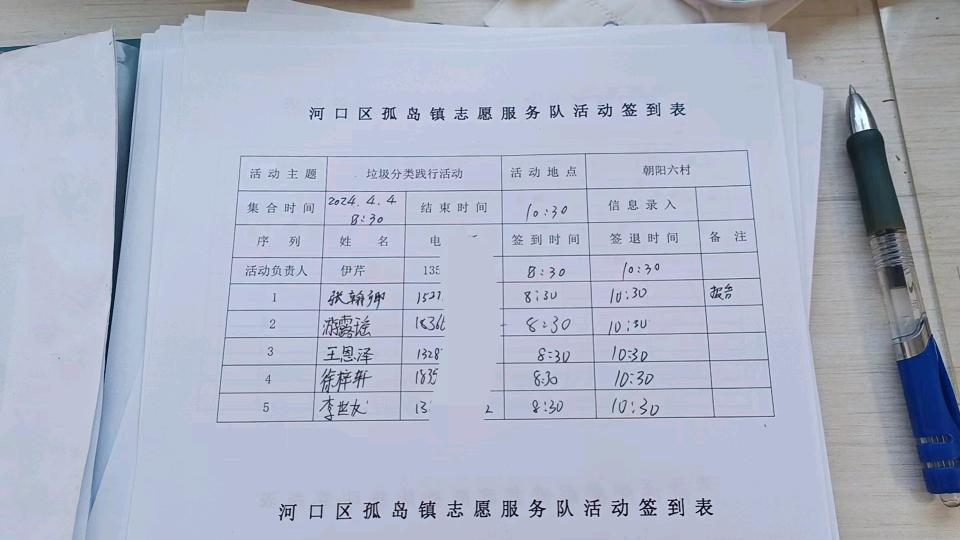 河口区孤岛镇志愿服务队活动签到表
活动主题 垃圾分类践行活动 活动地点 朝阳六村
集合时间 2024.4.4 8:30 结束时间 10:30 信息录入
序列 姓名 电 签到时间 签退时间 备注
活动负责人 伊芹 135 8:30 10:30
1 张翰卿 1527 8:30 10:30
2 8:30 10:30
3 王恩泽 1328 8:30 10:30
4 徐梓轩 1835 8:30 10:30
5 13 2 8:30 10:30
河口区孤岛镇志愿服务队活动签到表